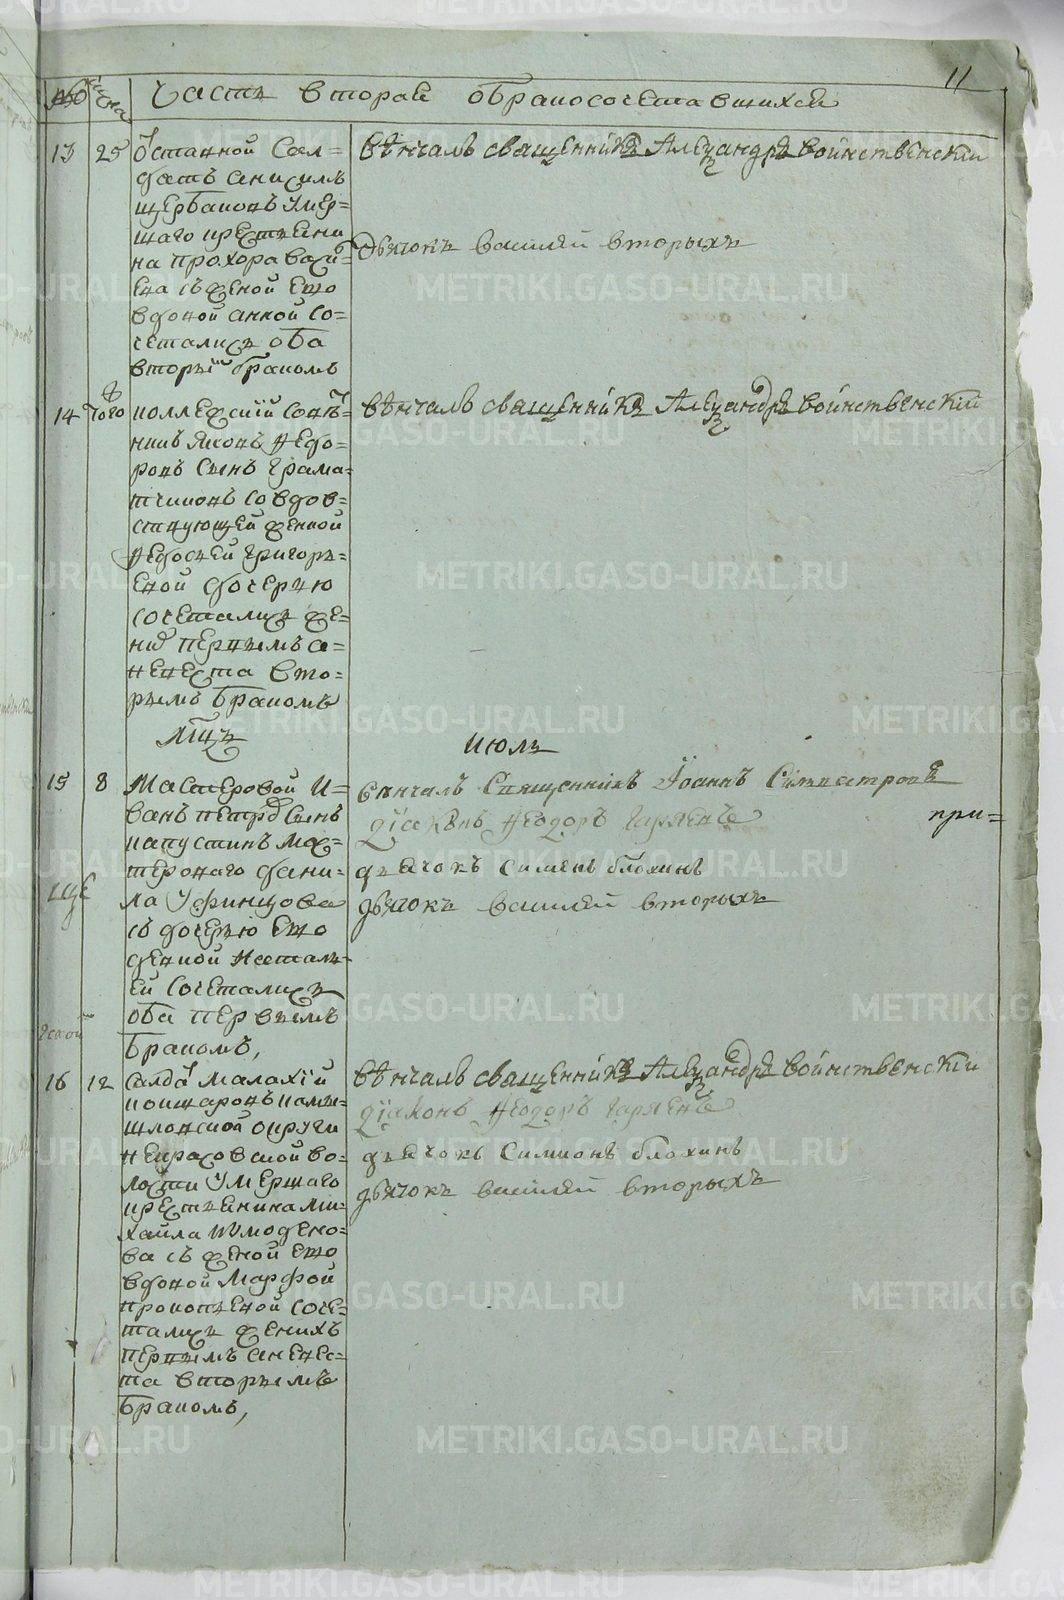 11
№ числа Часть вторая обракосочетавшихся
13 25 отставной Сал=
датъ анисимъ
щербаковъ умер=
шаго крестьяни
на прохора
сь женой ево
вдовой анной со=
четались оба
вторы браком
вѣнчалъ священникъ Александръ воинственскій
дьячокъ василей вторыхъ
14 того
Яковъ Федо=
ровъ сынъ грама=
тчиковъ со вдов=
ствующей женкой
Федосьей григорь=
евой дочерью
сочетались же=
нихъ первымъ а=
невеста вто=
рымъ бракомъ
вѣнчалъ священникъ Александръ воинственскій
мцъ июль
15 8 Мастеровой И=
ванъ петровъ сынъ
капустинъ мас=
тероваго дани=
ла Уфинцова
сь дочерью ево
девкой натал=
ей сочетались
оба первымъ
бракомъ,
вѣнчалъ Священникъ Іоаннъ Силвестровъ
діаконъ Феодоръ
дьячокъ симионъ блохинъ
дьячокъ василей вторыхъ
при=
16 12 салда малахій
камы=
шловской округи
во=
лости умершаго
крестьянина ми=
хайла
ва сь женой ево
вдовой Марфой
прокопьевой соче=
тались женихъ
первымъ аневес=
та вторымъ
бракомъ,
вѣнчалъ священникъ Александръ воинственскій
діаконъ Феодоръ
дьячокъ симионъ блохинъ
дьячокъ василей вторыхъ
METRIKI.GASO-URAL.RU